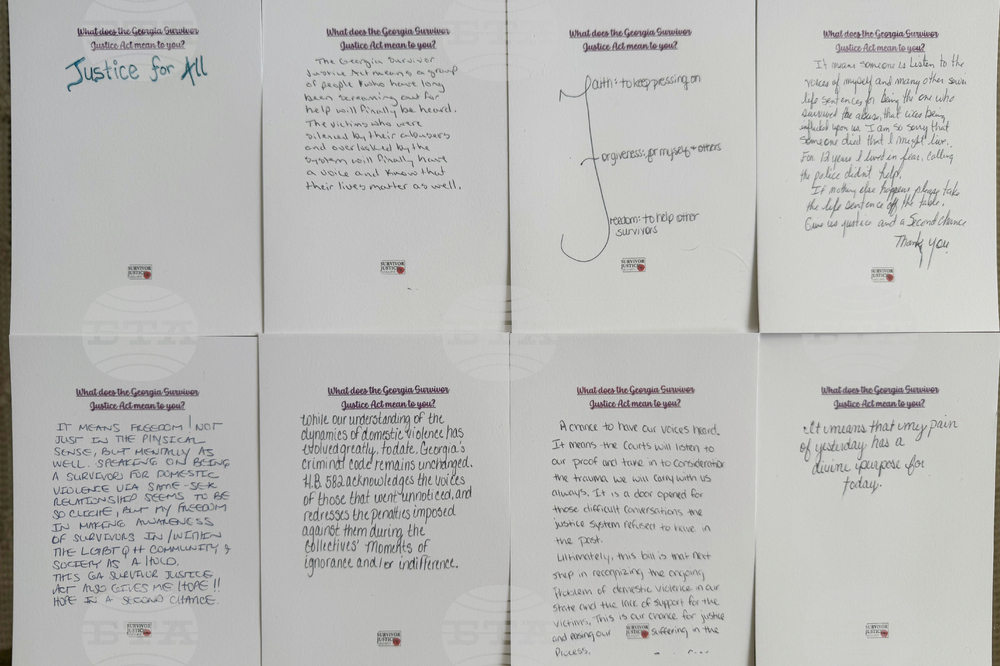 What does the Georgia Survivor
Justice Act mean to you?
Justice for All
SURVIVOR
JUSTICE
What does the Georgia Survivor
Justice Act mean to you?
The Georgia Survivor
Justice Act means a group
of people who have long
been screaming out for
help will finally be heard.
The victims who were
silenced by their abusers
and overlooked by the
system will finally have
a voice and know that
their lives matter as well.
SURVIVOR
JUSTICE
What does the Georgia Survivor
Justice Act mean to you?
Faith: to keep pressing on
Forgiveness: for myself + others
Freedom: to help other
survivors
SURVIVOR
JUSTICE
What does the Georgia Survivor
Justice Act mean to you?
It means someone is Listen to the
voices of myself and many other
life sentences for being the one who
survived the abuse, that was being
inflicted upon us. I am so sorry that
someone died that I might live.
For 12 years I lived in fear, calling
the police didn't help.
If nothing else happens please take
the life sentence off the table.
Give us justice and a Second chance
Thank you
SURVIVOR
JUSTICE
What does the Georgia Survivor
Justice Act mean to you?
IT MEANS FREEDOM! NOT
JUST IN THE PHYSICAL
SENSE, BUT MENTALLY AS
WELL. SPEAKING ON BEING
A SURVIVOR FOR DOMESTIC
VIOLENCE VIA SAME-SEX
RELATIONSHIP SEEMS TO BE
SO CLICHE, BUT MY FREEDOM
IN MAKING AWARENESS
OF SURVIVORS IN/WITHIN
THE LGBTQ+ COMMUNITY &
SOCIETY AS A WHOLE.
THIS GA SURVIVOR JUSTICE
ACT ALSO GIVES ME HOPE!!
HOPE IN A SECOND CHANCE.
SURVIVOR
JUSTICE
What does the Georgia Survivor
Justice Act mean to you?
While our understanding of the
dynamics of domestic violence has
evolved greatly, to date, Georgia's
criminal code remains unchanged.
H.B. 582 acknowledges the voices
of those that went unnoticed, and
redresses the penalties imposed
against them during the
Collectives' moments of
ignorance and/or indifference.
SURVIVOR
JUSTICE
What does the Georgia Survivor
Justice Act mean to you?
A chance to have our voices heard.
It means the Courts will listen to
our proof and take in to Consideration
the trauma we will carry with us
always. It is a door opened for
those difficult conversations the
justice system refused to have in
the past.
Ultimately, this bill is that next
step in recognizing the ongoing
problem of domestic violence in our
state and the lack of support for the
victims. This is our chance for justice
and easing our suffering in the
Process.
SURVIVOR
JUSTICE
What does the Georgia Survivor
Justice Act mean to you?
It means that my pain
of yesterday has a
divine purpose for
today.
SURVIVOR
JUSTICE
БТА
БТА
БТА
БТА